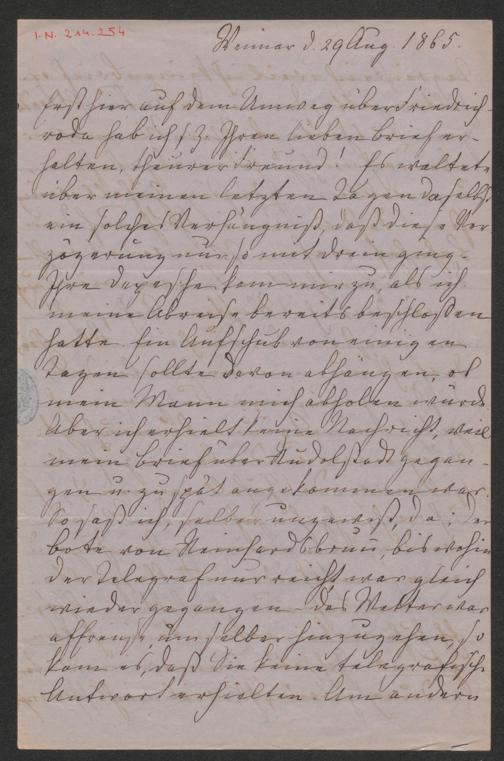 I.N. 214.254
Weimar d. 29 Aug. 1865.
Erst hier auf dem Umweg über Friedrich
roda hab ich, s. z. Ihren lieben Brief er-
halten, theurer Freund! Es waltete
über meinen letzten Tagen daselbst
ein solches Verhängniß, daß diese Ver-
zögerung nur so mit drein ging.
Ihre Depesche kam mir zu, als ich
meine Abreise bereits beschloßen
hatte. Ein Aufschub von einigen
Tagen sollte davon abhängen, ob
mein Mann mich abholen würde.
Aber ich erhielt keine Nachricht, weil
mein Brief über Rudolstadt gegan-
gen u. zu spät angekommen war.
So saß ich, selber ungewiß da; der
Bote von Reinhardsbrun, bis wohin
der Telegraf nur reicht war gleich
wieder gegangen – das Wetter war
affreuse um selber hinzugehen, so
kam es, daß Sie keine telegrafische
Antwort erhielten. Am andern